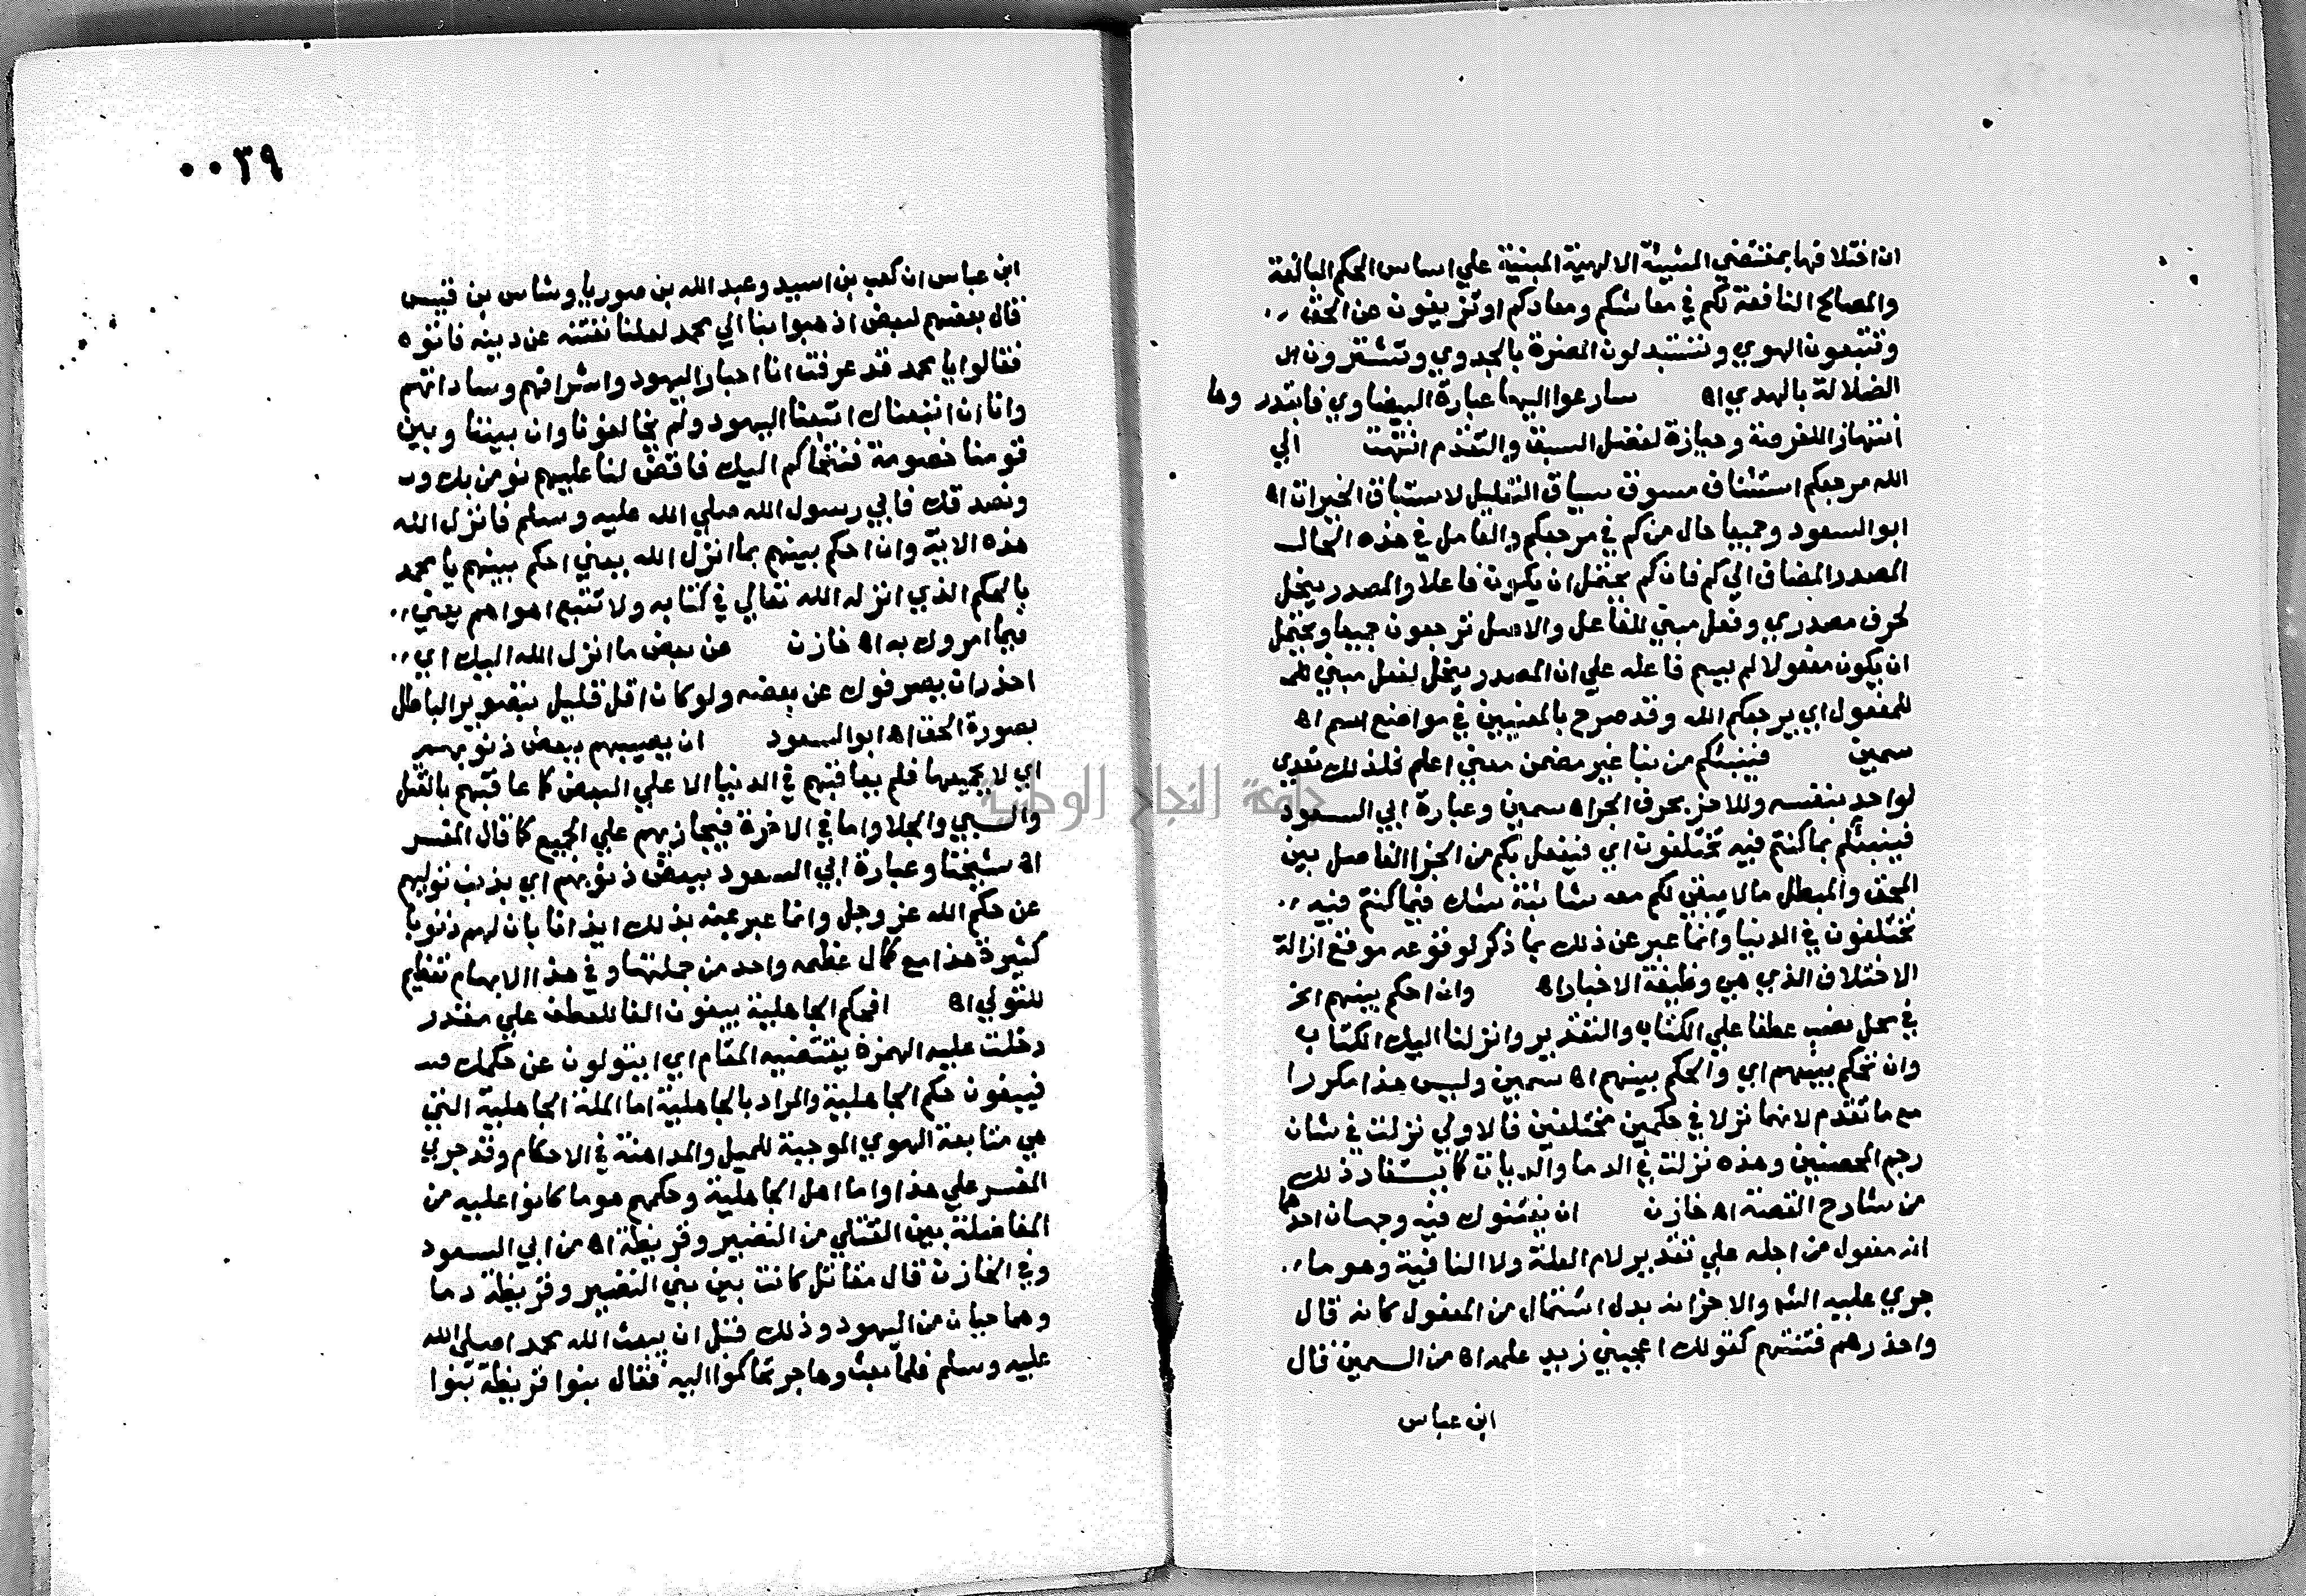 ان اختلافها بمقتضي المشيئة الالهية المبنية علي اساس الحكم البالغة
والمصالح النافعة لكم في معاشكم ومعادكم او تزيغون عن الحق
وتتبعون الهوي وتستبدلون المضرة بالجدوي وتشترون ال
الضلالة بالهدي اه سارعوا اليها عبارة البيضاوي فابتدروها
انتهازا للفرصة وحيازة لفضل السبق والتقدم انتهت الي
الله مرجعكم استئناف مسوق سياق التعليل لاستباق الخيرات اه
ابو السعود وجميعا حال من كم في مرجعكم والعامل في هذه الحال
المصدر المضاف الي كم فان كم يحتمل ان يكون فاعلا والمصدر ينحل
لحرف مصدري وفعل مبني للفاعل والاصل ترجعون جميعا ويحتمل
ان يكون مفعولا لم يسم فاعله علي ان المصدر ينحل لفعل مبني للم
للمفعول اي يرجعكم الله وقد صرح بالمعنيين في مواضع اسم اه
سمين فينبئكم من نبا غير مضمن معني اعلم فلذلك تعدي
لواحد بنفسه وللاخر بحرف الجر اه سمين وعبارة ابي السعود
فينبئكم بما كنتم فيه تختلفون اي فيفعل بكم من الجزا الفاصل بين
المحق والمبطل ما لا يبقي لكم معه شائبة شك فيما كنتم فيه
تختلفون في الدنيا وانما عبر عن ذلك بما ذكر لوقوعه موقع ازالة
الاختلاف الذي هي وظيفة الاخبار اه وان احكم بينهم الخ
في محل نصب عطفا علي الكتاب والتقدير وانزلنا اليك الكتاب
وان تحكم بينهم اي والحكم بينهم اه سمين وليس هذا مكررا
مع ما تقدم لانهما نزلا في حكمين مختلفين فالاولي نزلت في شان
رجم المحصنين وهذه نزلت في الدما والديات كما يستفاد ذلك
من شارح القصة اه خازن ان يفتنوك فيه وجهان احدها
انه مفعول من اجله علي تقدير لام العلة ولا النافية وهو ما
جري عليه الشم والاخر انه بدل اشتمال من المفعول كانه قال
واحذرهم فتنتهم كقولك اعجبني زيد علمه اه من السمين قال
ابن عباس
٠٠٣٩
ابن عباس ان كعب بن اسيد وعبد الله بن صوريا وشاس بن قيس
قال بعضهم لبعض اذهبوا بنا الي محمد لعلنا نفتنه عن دينه فاتوه
فقالوا يا محمد قد عرفت انا احبار اليهود واشرافهم وساداتهم
وانا ان اتبعناك اتبعنا اليهود ولم يخالفونا وان بيننا وبين
قومنا خصومة فنتحاكم اليك فاقض لنا عليهم نومن بك و
ونصدقك فابي رسول الله صلي الله عليه وسلم فانزل الله
هذه الاية وان احكم بينهم بما انزل الله يعني احكم بينهم يا محمد
بالحكم الذي انزله الله تعالي في كتابه ولا تتبع اهواهم يعني
فيما امروك به اه خازن عن بعض ما انزل الله اليك اي
احذر ان يصرفوك عن بعضه ولو كان اقل قليل بتصوير الباطل
بصورة الحق اه ابو السعود ان يصيبهم ببعض ذنوبهم
اي لا بجميعها فلم يعاقبهم في الدنيا الا علي البعض كما عاقبهم بالقتل
والسبي والجلا واما في الاخرة فيجازيهم علي الجميع كما قال المفسر
اه شيخنا وعبارة ابي السعود ببعض ذنوبهم اي بذنب توليهم
عن حكم الله عز وجل وانما عبر عنه بذلك ايذانا بان لهم ذنوبا
كثيرة هذا مع كمال عظمه واحد من جملتها وفي هذا الابهام تعظيم
للتولي اه افحكم الجاهلية يبغون الفا للعطف علي مقدر
دخلت عليه الهمزة يقتضيه المقام اي ايتولون عن حكمك
فيبغون حكم الجاهلية والمراد بالجاهلية اما الملة الجاهلية التي
هي متابعة الهوي الموجبة للميل والمداهنة في الاحكام وقد جري
المفسر علي هذا واما اهل الجاهلية وحكمهم هو ما كانوا عليه من
المفاضلة بين القتلي من النضير وقريظة اه من ابي السعود
وفي الخازن قال مقاتل كانت بين بني النضير وقريظة دما
وهما حيان من اليهود وذلك قبل ان يبعث الله محمدا صلي الله
عليه وسلم فلما بعث وهاجر تحاكموا اليه فقال بنوا قريظة بنوا
جامعة النجاح الوطنية